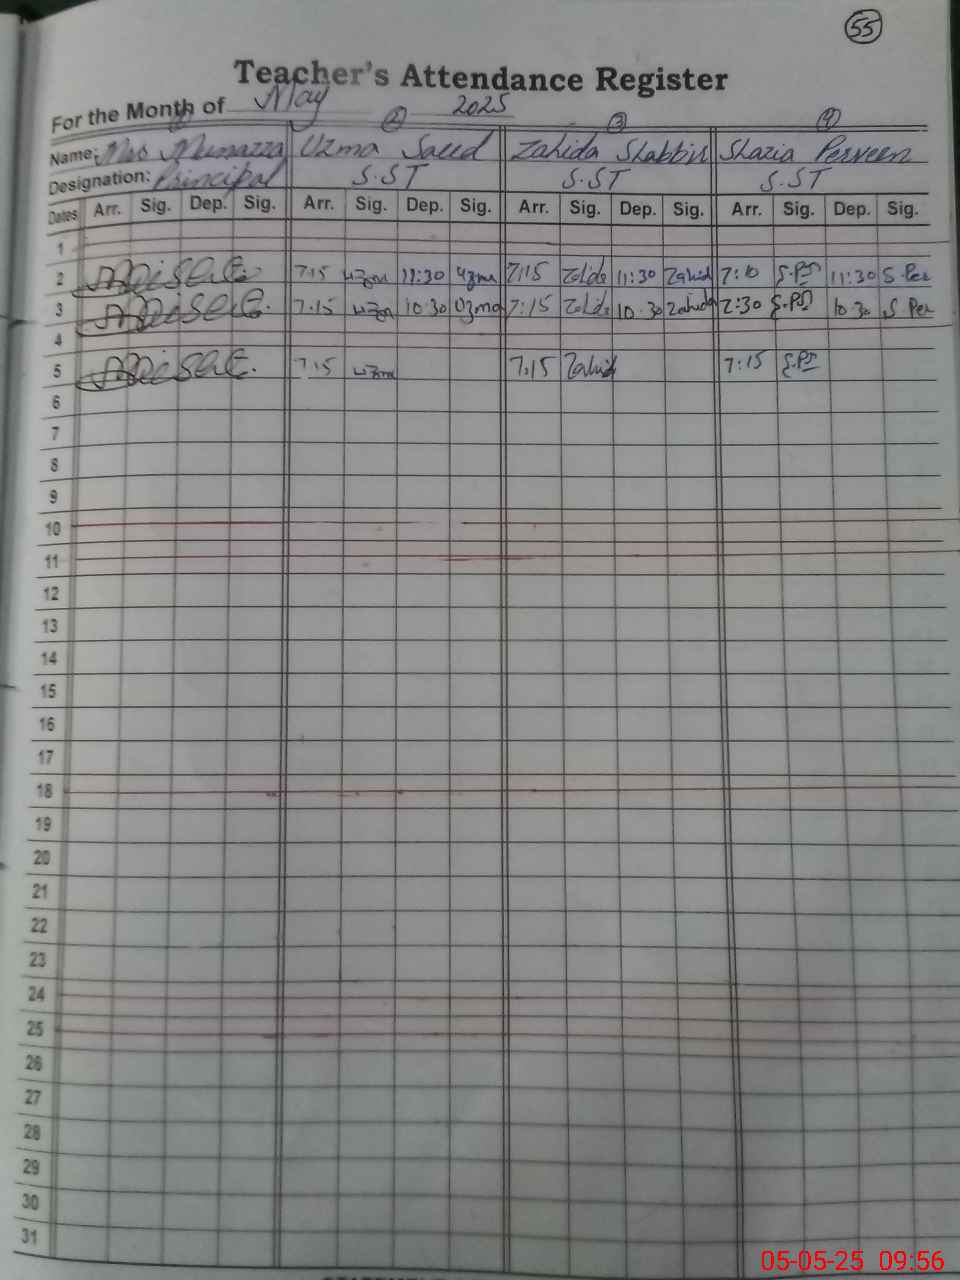 55
Teacher's Attendance Register
For the Month of May 2025
② ③ ④
Name: Mrs Munazza Uzma Saeed Zahida Shabbir Shazia Perveen
Designation: Principal S.ST S.ST S.ST
Dates Arr. Sig. Dep. Sig. Arr. Sig. Dep. Sig. Arr. Sig. Dep. Sig. Arr. Sig. Dep. Sig.
1
2 7:15 uzma 11:30 uzma 7:15 11:30 Zahid 7:10 11:30 S.Per
3 7:15 uzma 10:30 Uzma 7:15 10:30 Zahid 7:30 10:30 S.Per
4
5 7:15 uzma 7:15 Zahid 7:15
6
7
8
9
10
11
12
13
14
15
16
17
18
19
20
21
22
23
24
25
26
27
28
29
30
31
05-05-25 09:56